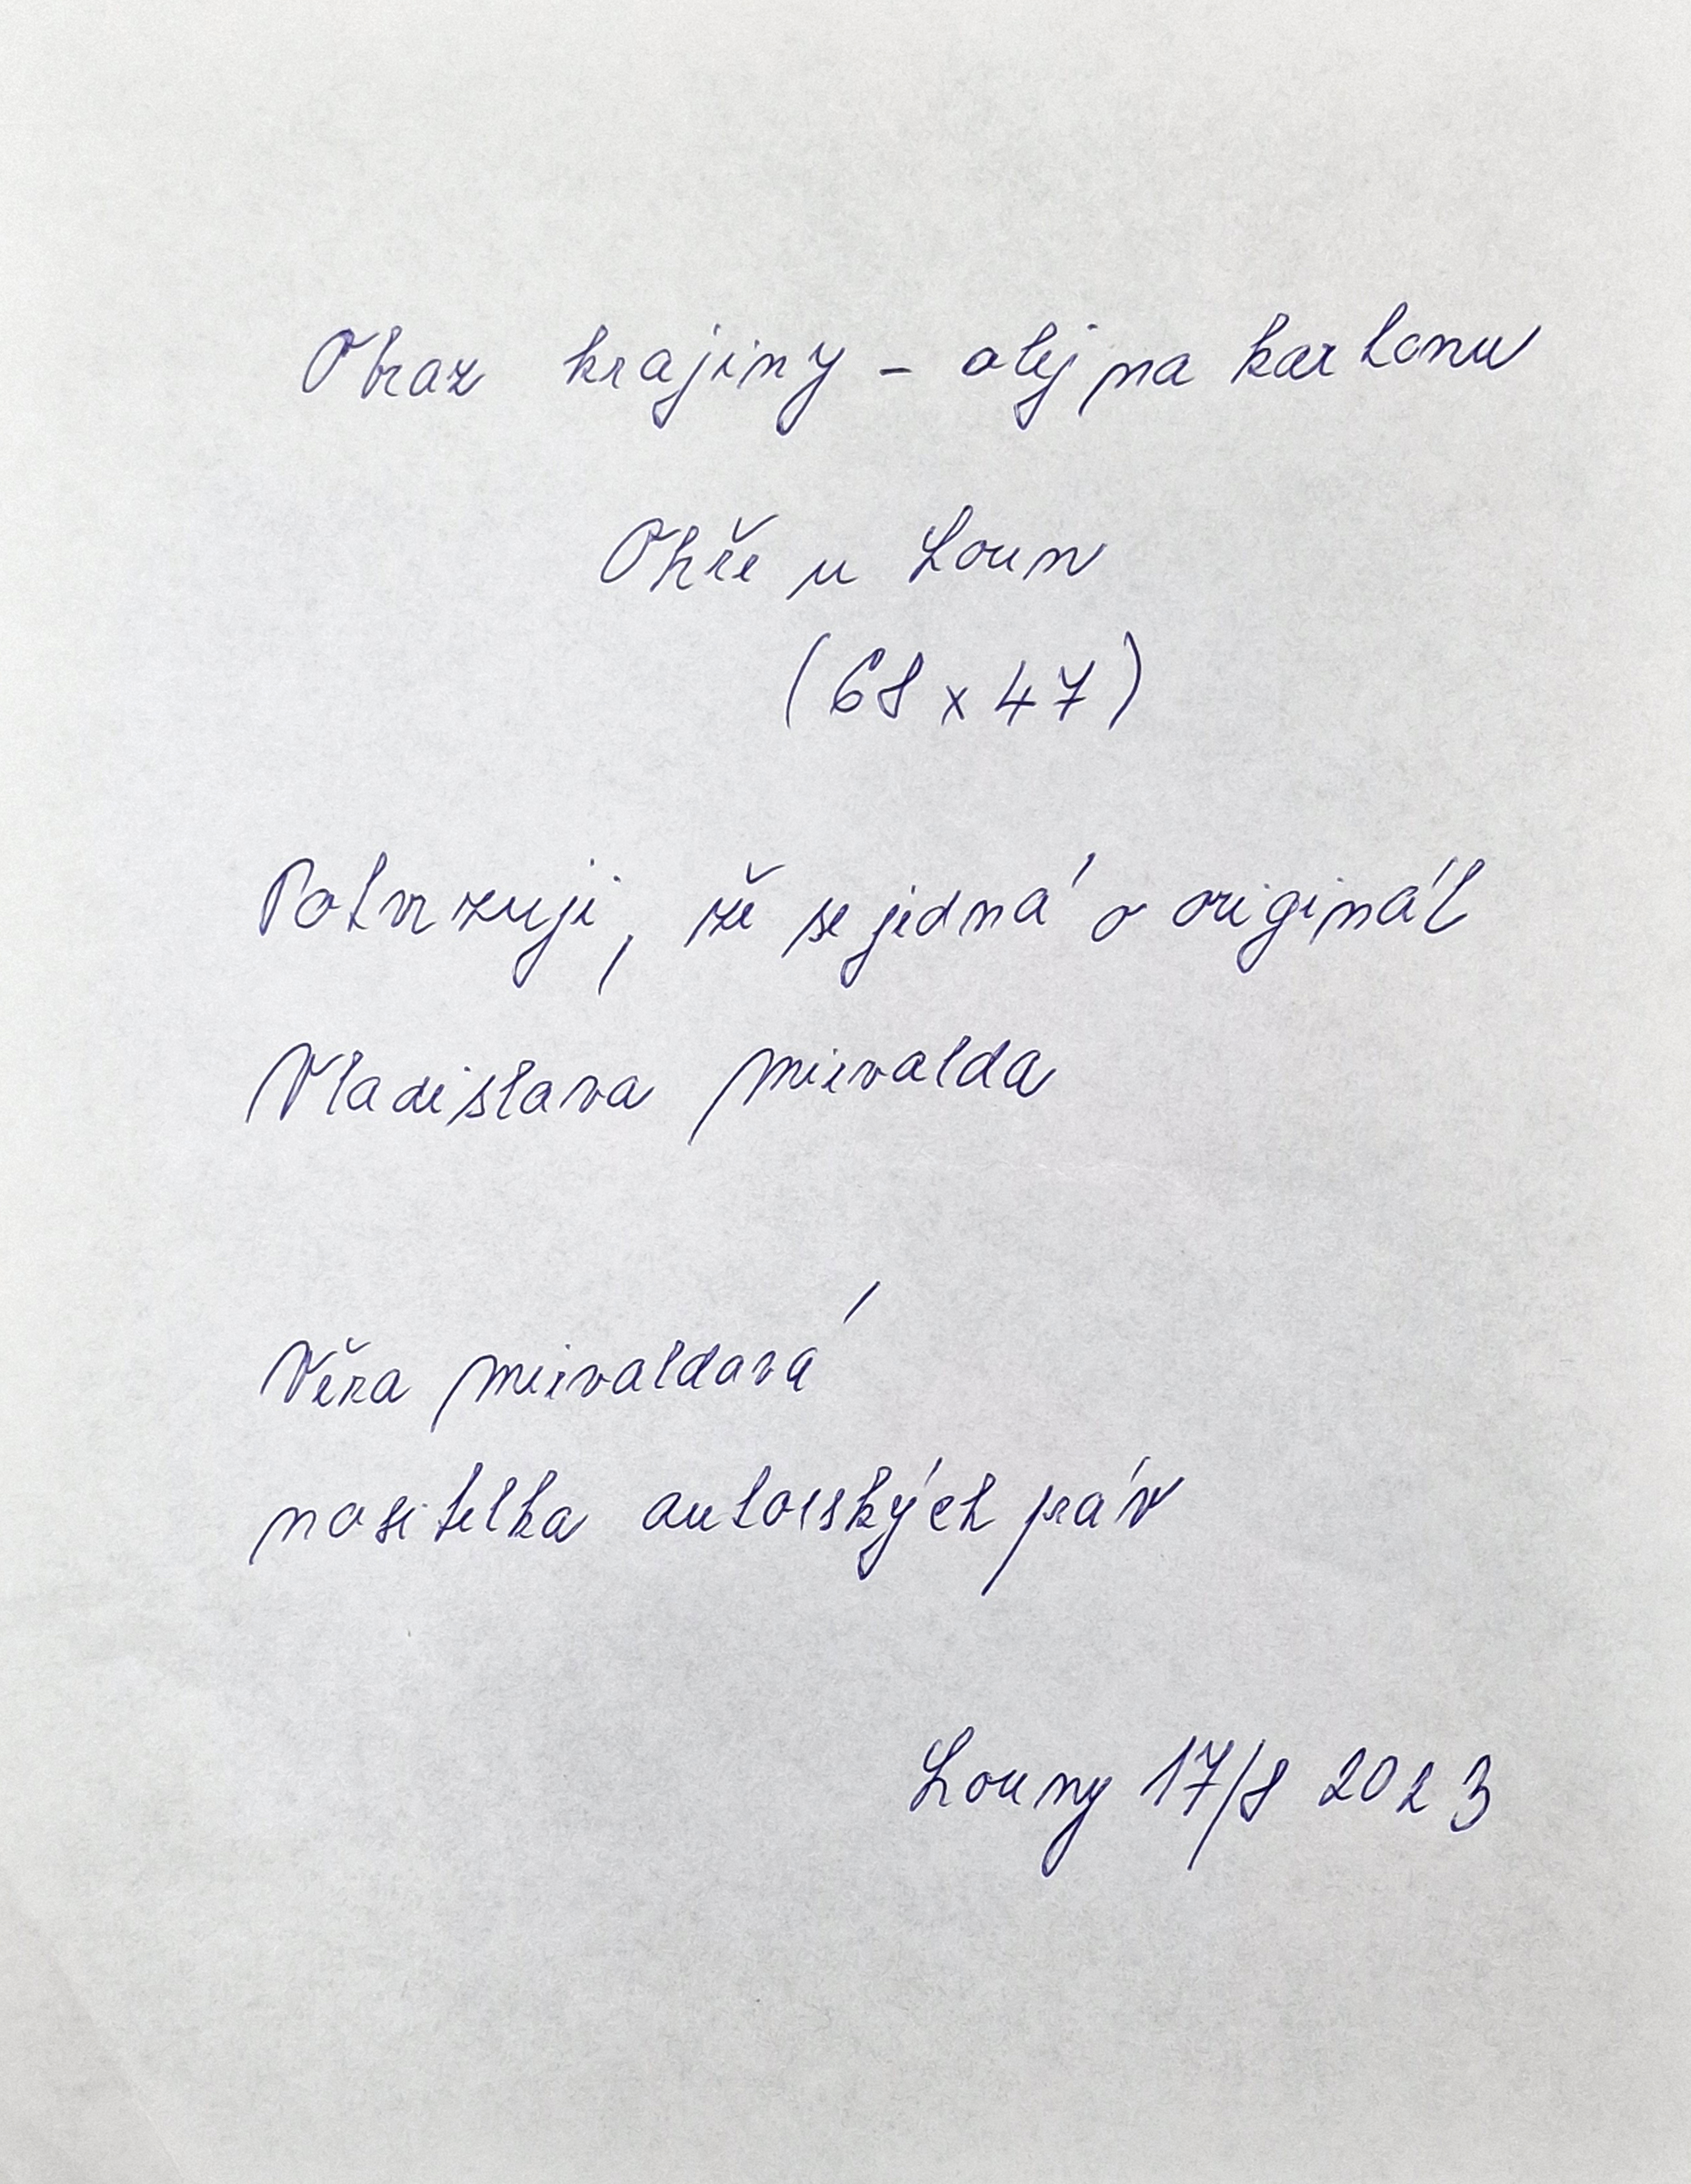 Obraz krajiny - olej na kartonu
Ohře u Loun
(68 x 47)
Potvrzuji, že se jedná o originál
Vladislava Mirvalda
Věra Mirvaldová
nositelka autorských práv
Louny 17/8 2023